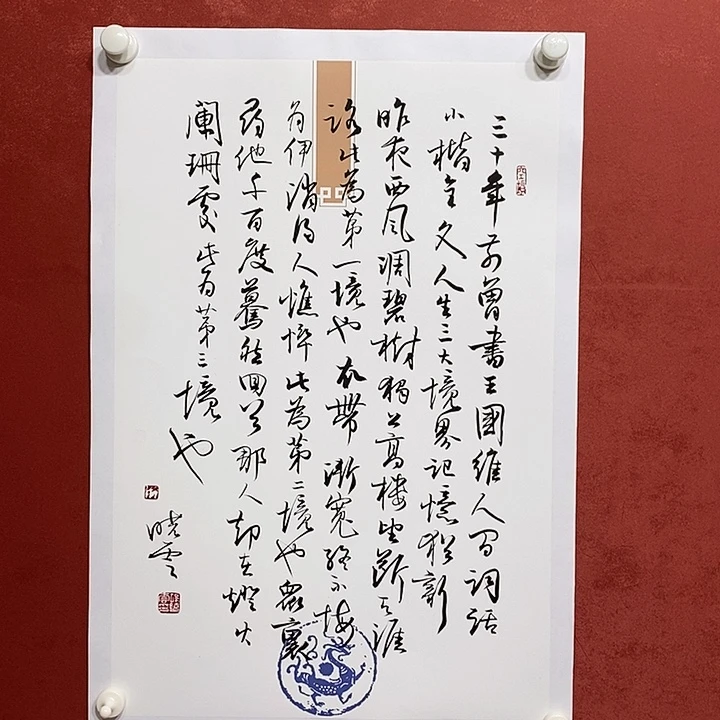 三十年前曾書王國維人间詞話
小楷全文人生三大境界記憶猶新
昨夜西风凋碧樹獨上高樓望断天涯
路此為第一境也衣帶漸寬終不悔
为伊消得人憔悴此為第二境也眾裏
尋他千百度驀然回首那人却在燈火
闌珊處此为第三境也
晓雲